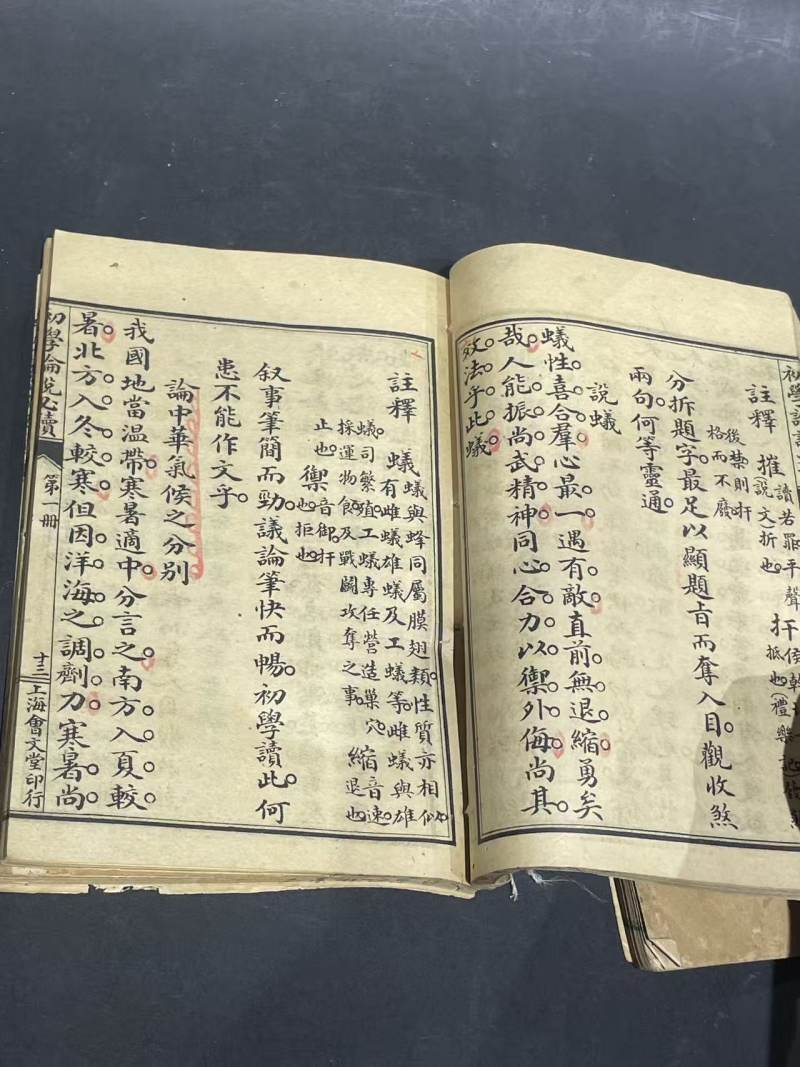 註釋 摧讀若罪平聲
說文折也
扞
抵也
後禁則扞
格而不
分拆題字最足以顯題旨而奪入目觀收煞
兩句何等靈通
說蟻
蟻性喜合羣心最一遇有敵直前無退縮勇矣
哉人能振尚武精神同心合力以禦外侮尚其
效法乎此蟻
註釋 蟻蟻與蜂同屬膜翅類性質亦相似
有雌蟻雄蟻及工蟻等雌蟻與雄
蟻司繁殖工蟻專任營造巢穴
採運物食及戰鬬攻奪之事
縮音速
退也
止也
禦音御扞
也拒也
叙事筆簡而勁議論筆快而暢初學讀此何
患不能作文乎
論中華氣候之分別
我國地當温帶寒暑適中分言之南方入夏較
暑北方入冬較寒但因洋海之調劑力寒暑尚
初學論說必讀
第一册
十三
上海會文堂印行